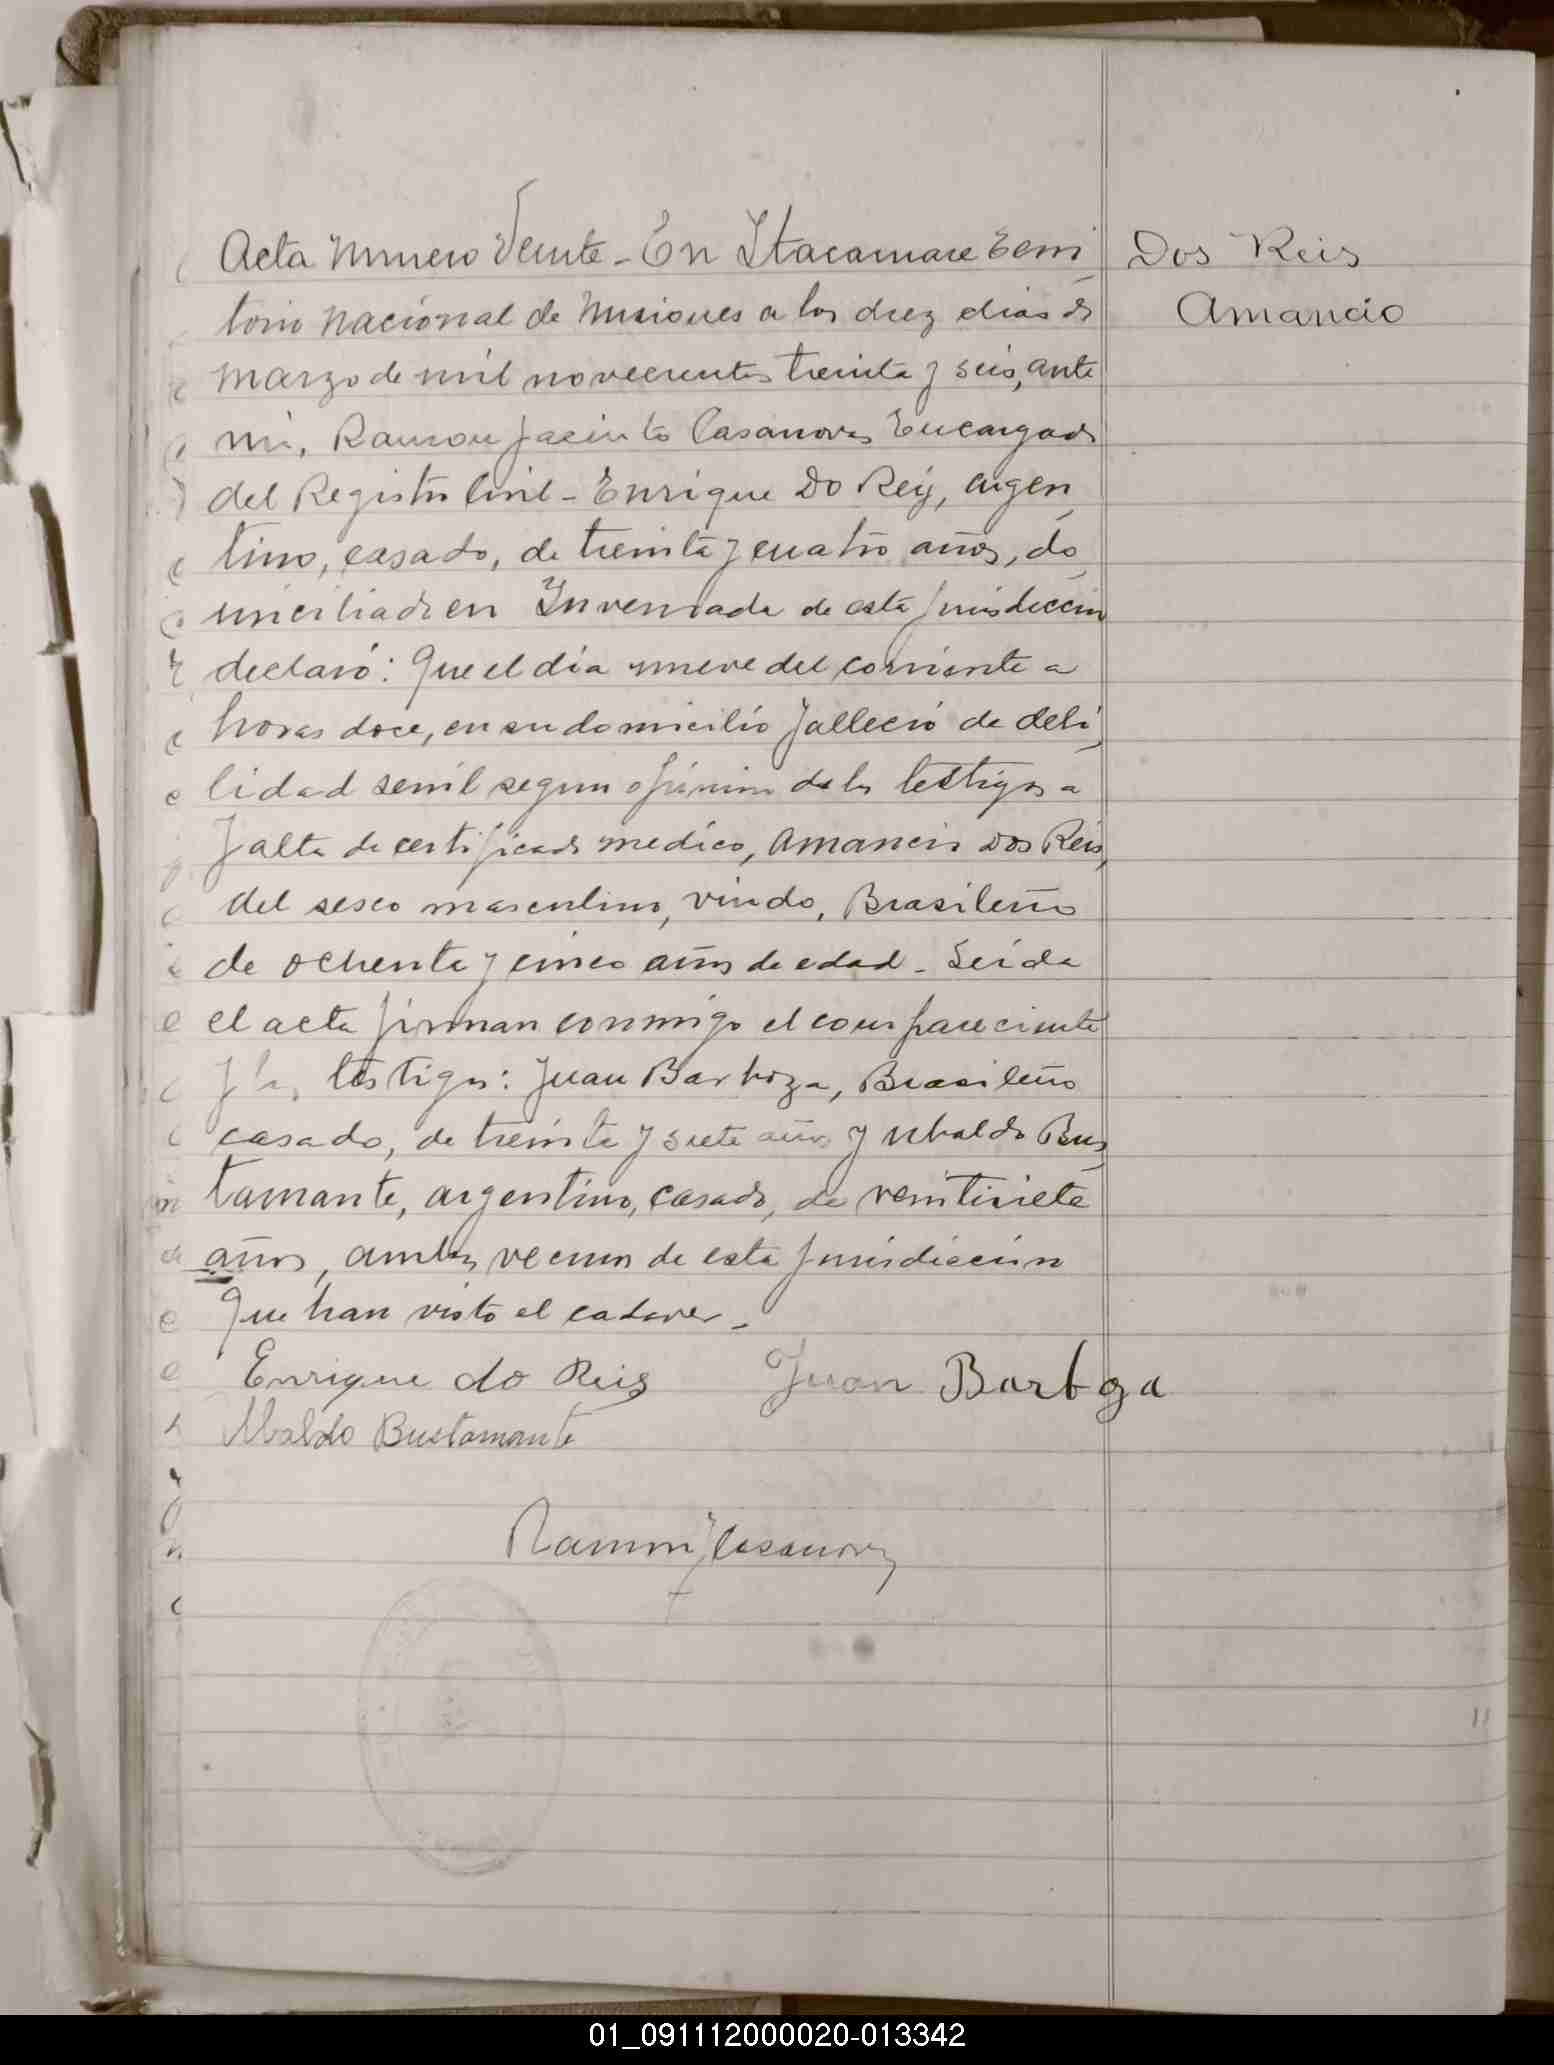 Acta Numero Veinte - En Itacaruare Terri
Dos Reis
torio Nacional de Misiones a los diez dias de
Amancio
marzo de mil novecientos treinta y seis, ante
mi, Ramon Jacinto Casanova, Encargado
del Registro Civil - Enrique Do Reij, argen
tino, casado, de treinta y cuatro años, do
miciliado en Invernada de esta jurisdiccion
declaró: Que el día nueve del corriente a
horas doce, en su domicilio falleció de debi
lidad senil segun opinion de los testigos a
falta de certificado medico, Amancio Dos Reis,
del sesco masculino, viudo, Brasileño
de ochenta y cinco años de edad - Leida
el acta firman conmigo el compareciente
y los testigos: Juan Barboza, Brasileño
casado, de treinta y siete años y Ubaldo Bus
tamante, argentino, casado, de veintisiete
años, ambos vecinos de esta jurisdiccion
Que han visto el cadaver -
Enrique do Reis Juan Barbza
Ubaldo Bustamante
Ramon J Casanova
01_091112000020-013342